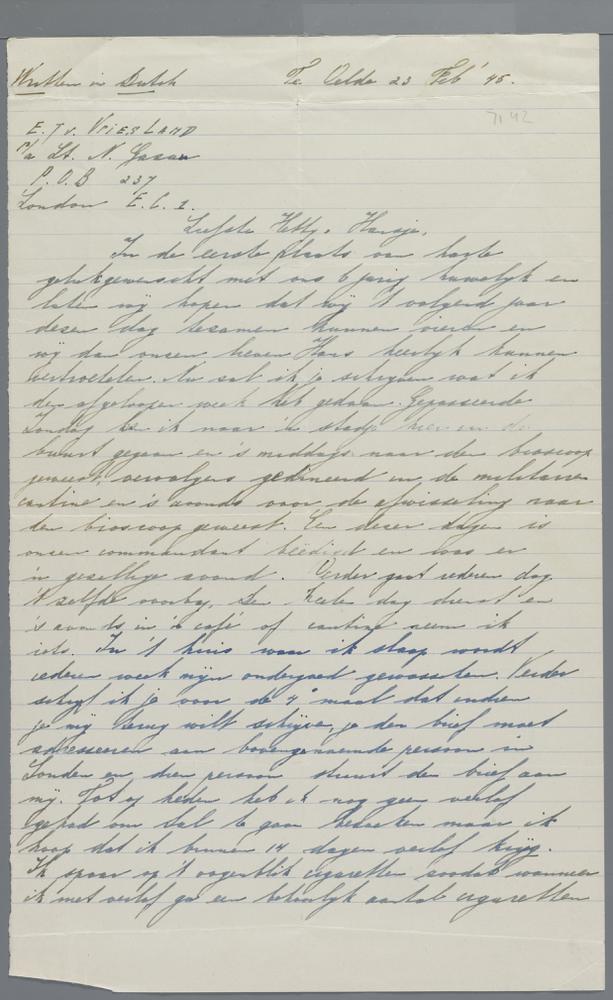 Written in Dutch Te Velde 23 Feb '45.
7142
E. J v. VRIESLAND
p/a Lt. N.
P.O.B 237
London E.C.1.
Liefste Hetty, Hansje,
In de eerste plaats van harte
gelukgewenscht met ons 6 jarig huwelijk en
laten wij hopen dat wij 't volgend jaar
dezen dag tezamen kunnen vieren en
wij dan onzen lieven Hans heerlijk kunnen
vertroetelen. Nu zal ik je schrijven wat ik
den afgeloopen week heb gedaan. Gepasseerde
Zondag ben ik naar 'n stadje hier in de
buurt gegaan en 's middags naar den bioscoop
geweest, vervolgens gedineerd in de militaire
cantine en 's avonds voor de afwisseling naar
den bioscoop geweest. Een dezer dagen is
onzen commandant beëdigd en was er
'n gezellige avond. Verder gaat iederen dag
't zelfde voorbij, den heelen dag dienst en
's avonds in 'n café of cantine neem ik
iets. In 't huis waar ik slaap wordt
iedere week mijn ondergoed gewasschen. Verder
schrijf ik je voor de 4e maal dat indien
je mij terug wilt schrijven, je den brief moet
adresseeren aan bovengenoemde persoon in
Londen en dien persoon stuurt den brief aan
mij. Tot op heden heb ik nog geen verlof
gehad om te gaan bezoeken maar ik
hoop dat ik binnen 14 dagen verlof krijg.
Ik spaar op 't oogenblik cigaretten zoodat wanneer
ik met verlof ga een behoorlijk aantal cigaretten